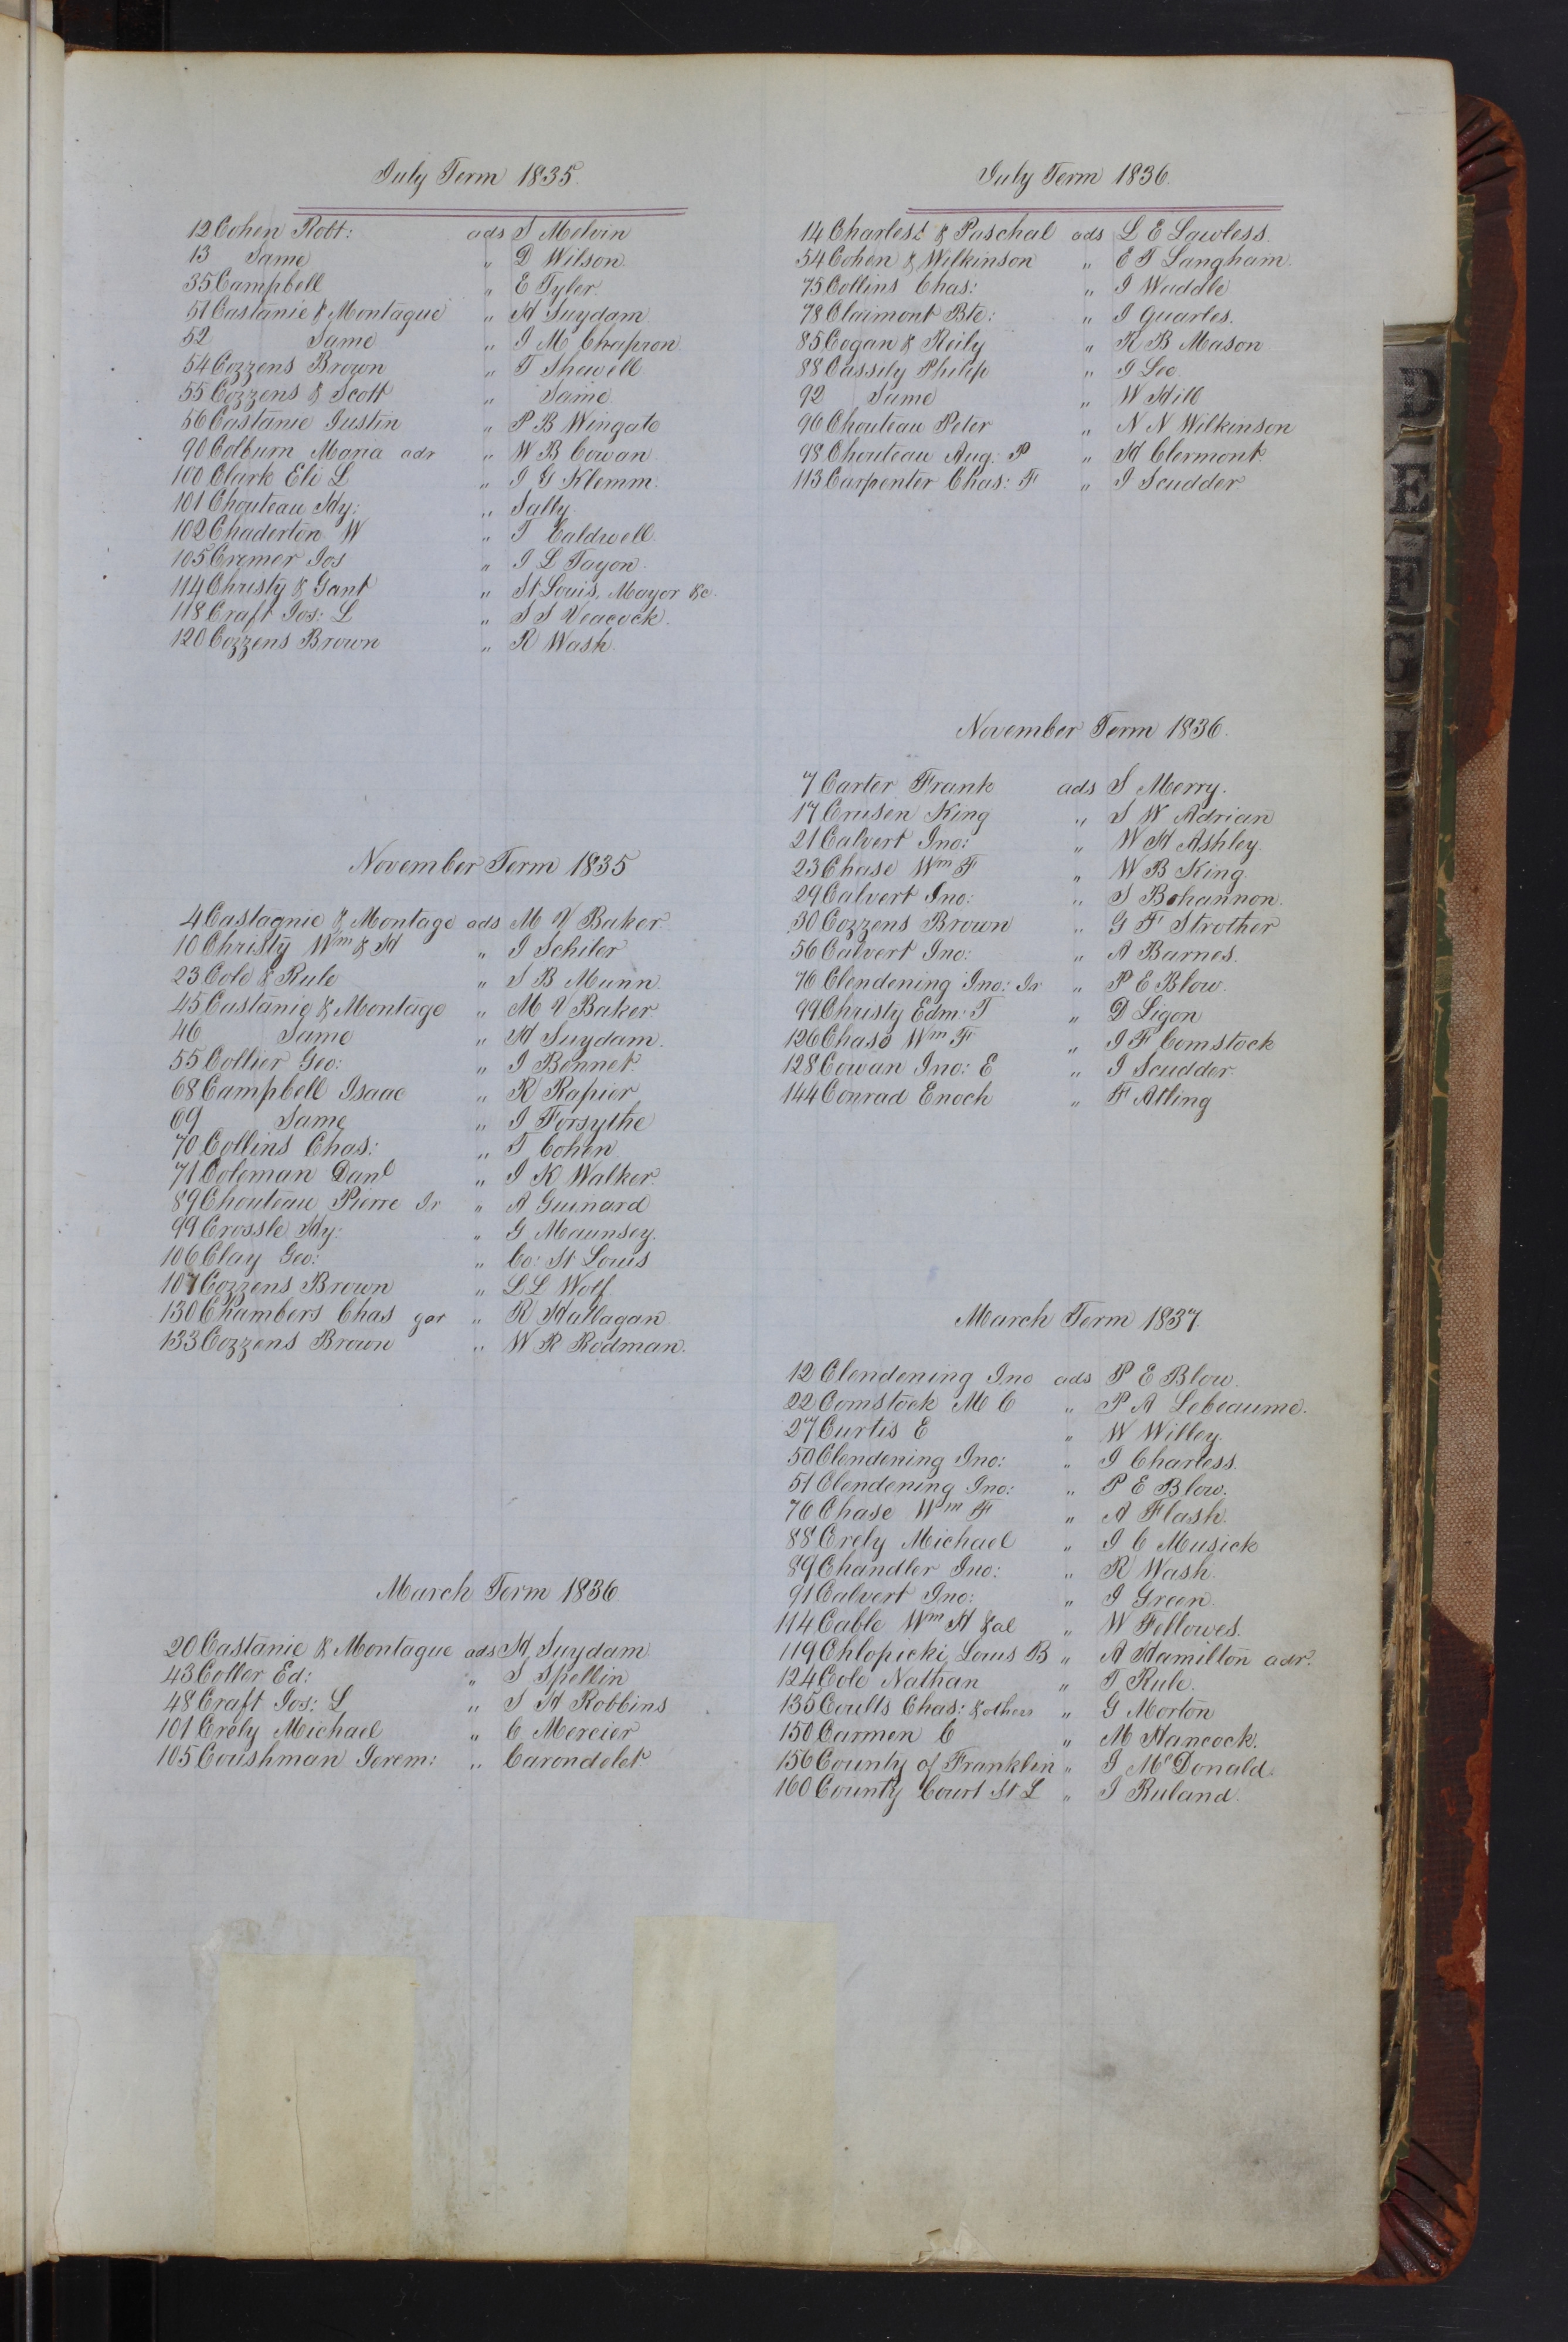 July Term 1835.
12 Cohen Robt: ads S Melvin
13 Same " D Wilson.
35 Campbell " E Tyler.
51 Castanie & Montague " H Suydam
52 Same " J M Chapron
54 Cozzens Brown " T Shewell
55 Cozzens & Scott " Same.
56 Castanie Justin " P B Wingate
90 Colburn Maria adr " W B Cowan.
100 Clark Eli L " J G Klemm.
101 Chouteau Hy: " Sally.
102 Chaderton W " T Caldwell.
105 Cremer Jos " J L Tayon.
114 Christy & Gant " St Louis, Mayor &c.
118 Craft Jos: L " S S Veacock.
120 Cozzens Brown " R Wash.
November Term 1835
4 Castagnie & Montage ads M V Baker.
10 Christy Wm & H " J Schiler
23 Cole & Rule " S B Munn.
45 Castanie & Montage " M V Baker
46 Same " H Suydam.
55 Collier Geo: " J Bonnet.
68 Campbell Isaac " R Rapier
69 Same " J Forsythe
70 Collins Chas: " T Cohen.
71 Coleman Danl " J K Walker.
89 Chouteau Pierre Jr " A Guinard
99 Crossle Hy: " G Maunsey.
106 Clay Geo: " Co: St Louis
107 Cozzens Brown " L L Wolf
130 Chambers Chas gar " R Hallagan
133 Cozzens Brown " W R Rodman.
March Term 1836.
20 Castanie & Montague ads H Suydam.
43 Coller Ed: " S Spellin
48 Craft Jos: L " S H Robbins
101 Crely Michael " C Mercier
105 Coushman Jerem: " Carondelet.
July Term 1836.
14 Charles: & Paschal ads L E Lawless.
54 Cohen & Wilkinson " E T Langham.
75 Collins Chas: " J Waddle
78 Claimont Bte: " J Quarles.
85 Cogan & Reily " R B Mason
88 Cassily Philip " G Lee.
92 Same " W Hill
96 Chouteau Peter " N N Wilkinson
98 Chouteau Aug: P " H Clermont.
113 Carpenter Chas: F " J Scudder
November Term 1836.
7 Carter Frank ads S Merry.
17 Crusen King " S W Adrian
21 Calvert Jno: " W H Ashley.
23 Chase Wm F " W B King.
29 Calvert Jno: " S Bohannon.
30 Cozzens Brown " G F Strother
56 Calvert Jno: " A Barnes.
76 Clendening Jno: Jr " P E Blow.
99 Christy Edm: T " D Ligon
126 Chase Wm F " J F Comstock
128 Cowan Jno: E " J Scudder.
144 Conrad Enoch " F Atling
March Term 1837.
12 Clendening Jno ads P E Blow.
22 Comstock M C " P A Lebeaume.
27 Curtis E " W Willey.
50 Clendening Jno: " J Charless.
51 Clendening Jno: " P E Blow.
76 Chase Wm F " A Flash.
88 Crely Michael " J C Musick
89 Chandler Jno: " R Wash.
91 Calvert Jno: " J Green.
114 Cable Wm H &al " W Fellowes.
119 Chlopicki Louis B " A Hamilton adr.
124 Cole Nathan " T Rule.
135 Coults Chas: & others " G Morton
150 Carmen C " M Hancock.
156 County of Franklin " J McDonald.
160 County Court St L " J Ruland.
D
E
F
G